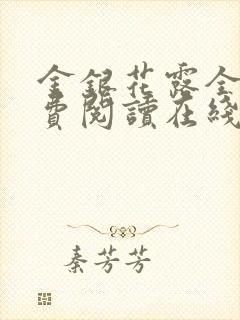 金銀花露全
費閱讀在綫
秦芳芳